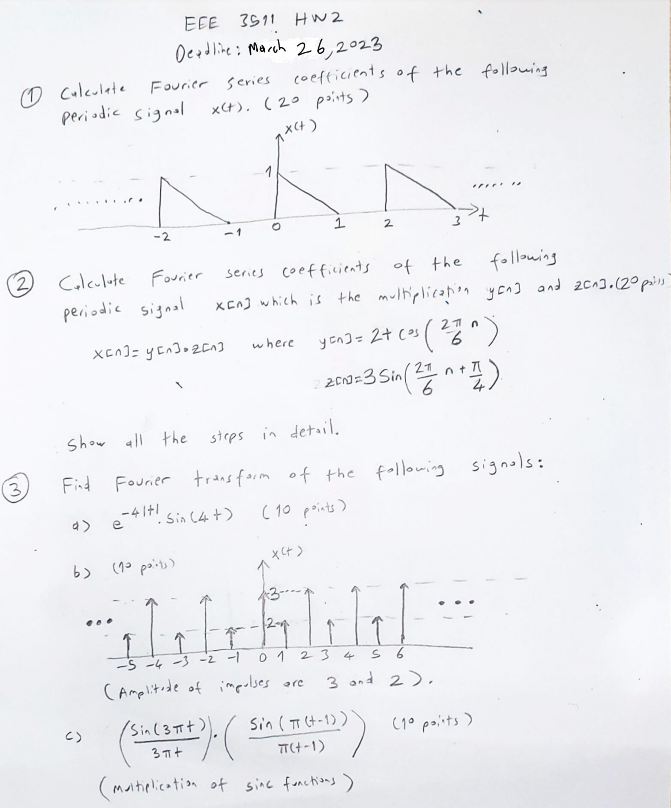 EEE 3511 HW2
Deadline: March 26, 2023
① Calculate Fourier series coefficients of the following
periodic signal x(t). (20 points)
x(t)
1
........... ......
-2 -1 0 1 2 3 t
② Calculate Fourier series coefficients of the following
periodic signal x[n] which is the multiplication y[n] and z[n]. (20 points
x[n] = y[n]·z[n] where y[n] = 2+ cos(2π/6 n)
z[n]=3 Sin(2π/6 n + π/4)
Show all the steps in detail.
③ Find Fourier transform of the following signals:
a) e^-4|t|. Sin(4t) (10 points)
b) (10 points) x(t)
3
... 2 ...
-5 -4 -3 -2 -1 0 1 2 3 4 5 6
(Amplitude of impulses are 3 and 2).
c) (Sin(3πt)/3πt).(Sin(π(t-1))/π(t-1)) (10 points)
(multiplication of sinc functions)